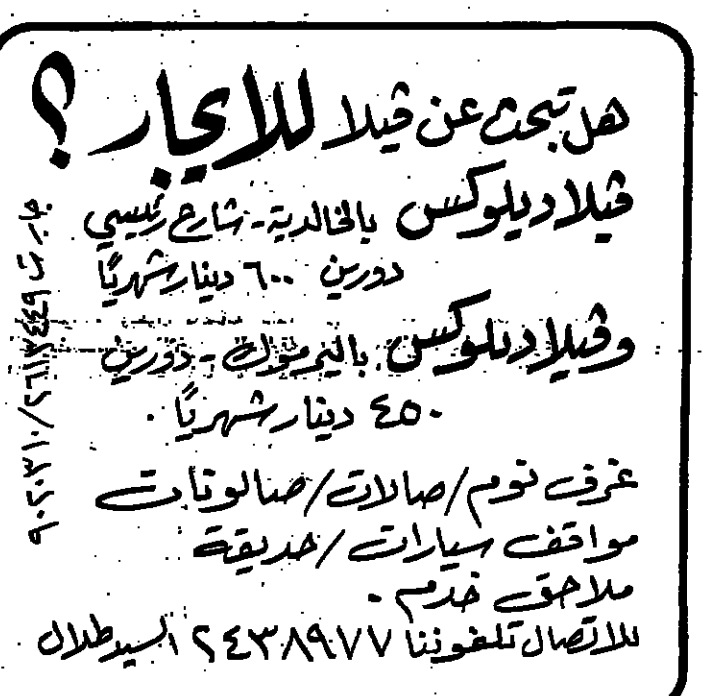 هل تبحث عن ڤيلا للايجار ؟
ڤيلا ديلوكس بالخالدية - شارع رئيسي
دورين ٦٠٠ دينار شهريًا
وڤيلا ديلوكس باليرموك - دورين
٤٥٠ دينار شهريًا .
غرف نوم / صالات / صالونات
مواقف سيارات / حديقة
ملاحق خدم .
للاتصال تلفوننا ٢٤٣٨٩٧٧ السيد طلال